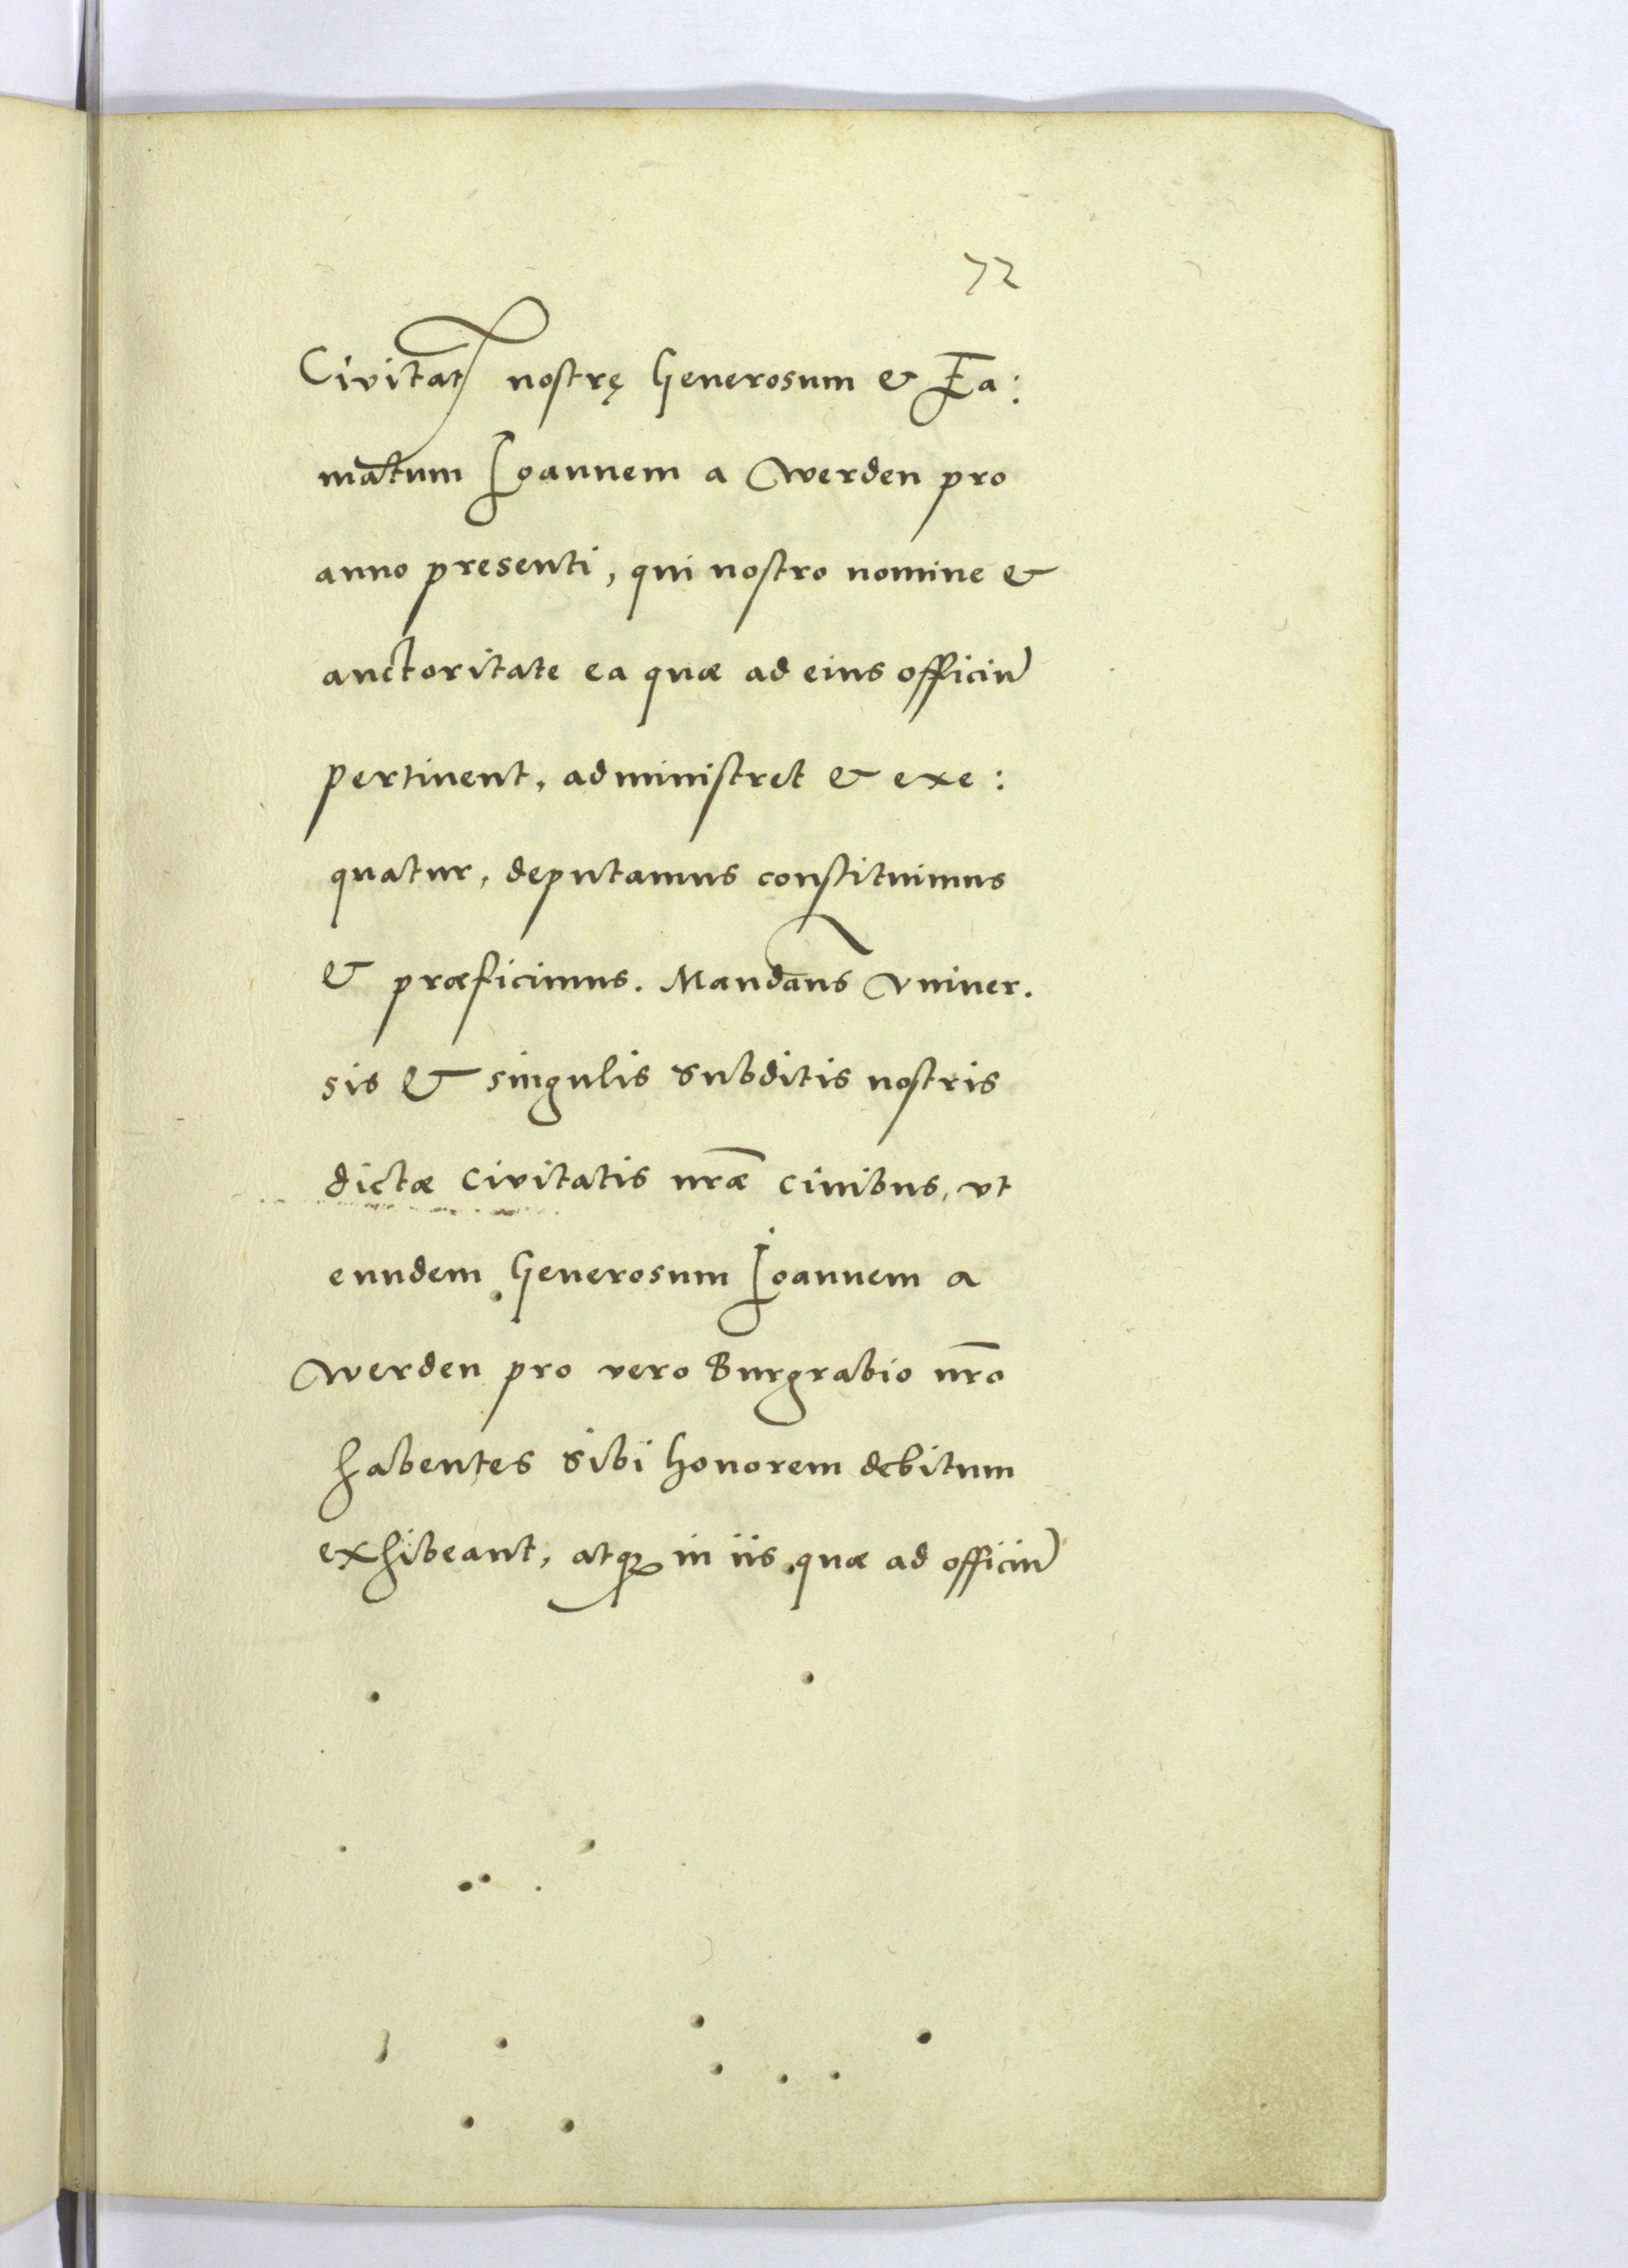 72
Civitatꝭ nostrę Generosum & Fa:
matum Ioannem a Werden pro
anno presenti, qui nostro nomine &
auctoritate ea quæ ad eius officiū
pertinent, administret & exe:
quatur, deputamus constituimus
& præficimus. Mandans vniuer.
sis & singulis subditis nostris
dictæ civitatis nr̄æ ciuibus, vt
eundem Generosum Ioannem a
Werden pro vero Burgrabio nr̄o
habentes sibi honorem debitum
exhibeant, atqꝫ in iis quæ ad officiū